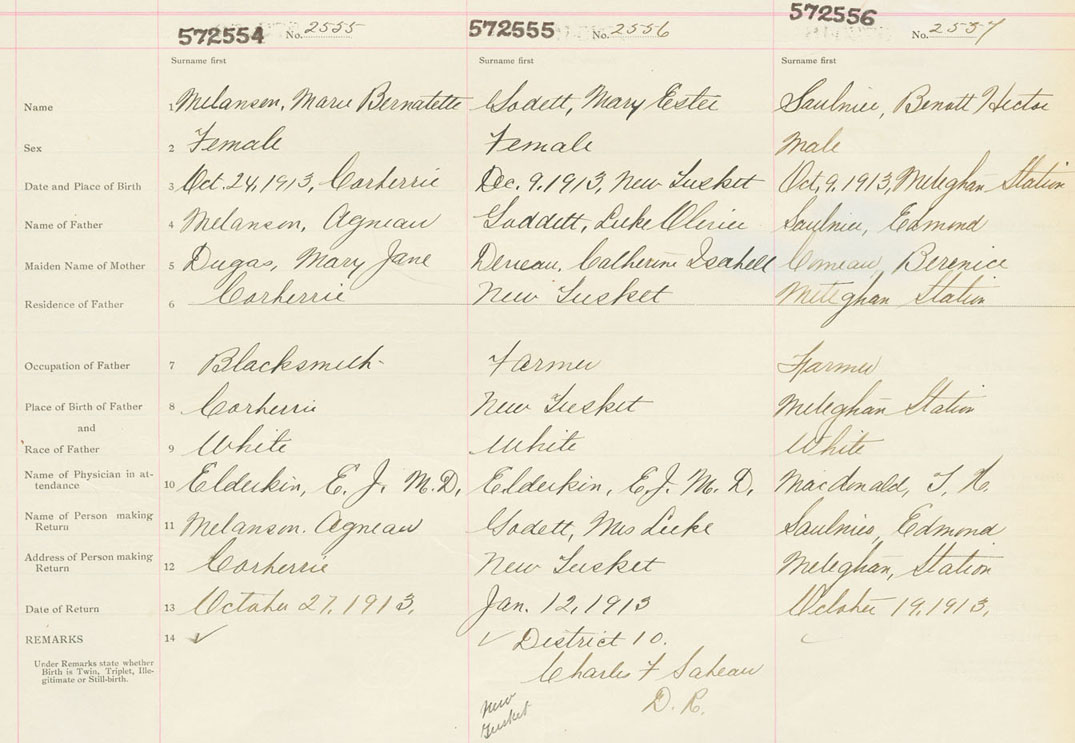 572554 No. 2555 572555 No. 2556 572556 No. 2557
Surname first Surname first Surname first
Name 1 Melanson, Marie Bernatette Godett, Mary Ester Saulnier, Benott Hector
Sex 2 Female Female Male
Date and Place of Birth 3 Oct. 24, 1913, Corberrie Dec. 9. 1913, New Tusket Oct, 9, 1913, Meteghan Station
Name of Father 4 Melanson, Agneau Goddett, Luke Olivier Saulnier, Edmond
Maiden Name of Mother 5 Dugas, Mary Jane Deneau, Catherine Isabell Comeau, Berenice
Residence of Father 6 Corberrie New Tusket Meteghan Station
Occupation of Father 7 Blacksmith Farmer Farmer
Place of Birth of Father 8 Corberrie New Tusket Meteghan Station
and
Race of Father 9 White White White
Name of Physician in at-
tendance 10 Elderkin, E. J. M.D. Elderkin, E.J. M. D. Macdonald, T. H.
Name of Person making
Return 11 Melanson. Agneau Godett, Mrs Luke Saulnier, Edmond
Address of Person making
Return 12 Corberrie New Tusket Meteghan, Station
Date of Return 13 October 27, 1913. Jan. 12, 1913 October 19, 1913.
REMARKS 14 ✓ ✓ District 10.
Under Remarks state whether
Birth is Twin, Triplet, Ille-
gitimate or Still-birth.
Charles F Sabeau
D. R.
New
Tusket